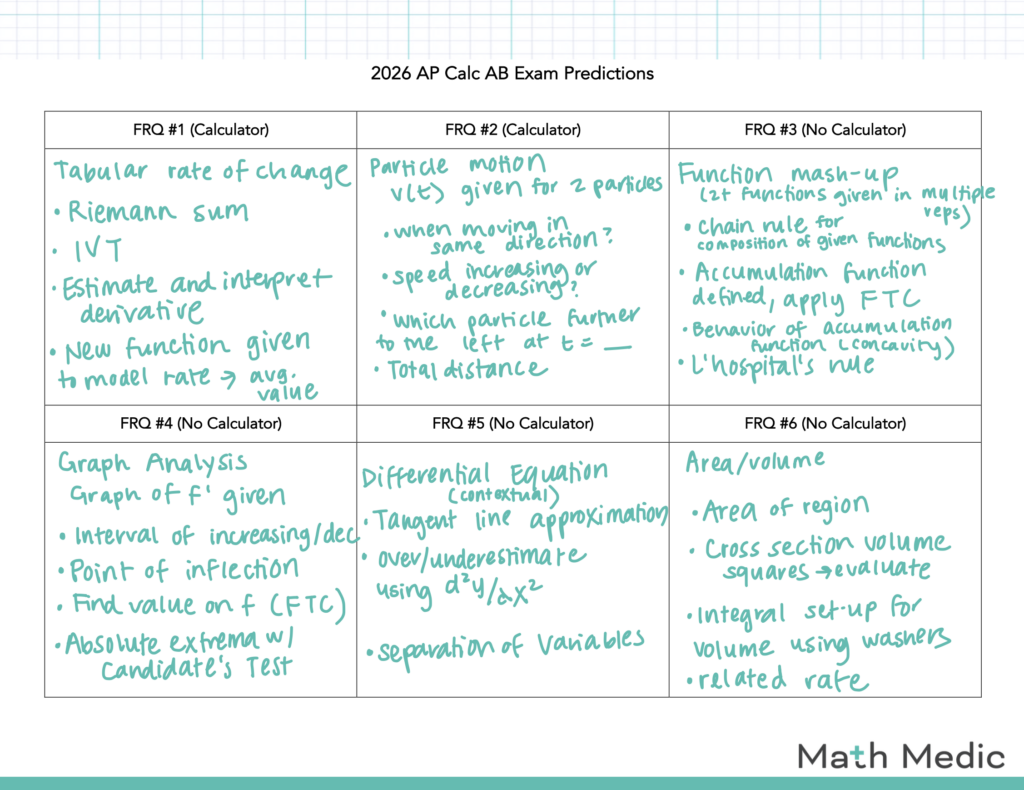 2026 AP Calc AB Exam Predictions
FRQ #1 (Calculator)
Tabular rate of change
• Riemann sum
• IVT
• Estimate and interpret
derivative
• New function given
to model rate → avg.
value
FRQ #2 (Calculator)
Particle motion
v(t) given for 2 particles
• when moving in
same direction?
• speed increasing or
decreasing?
• which particle further
to the left at t = __
• Total distance
FRQ #3 (No Calculator)
Function mash-up
(2+ functions given in multiple
reps)
• Chain rule for
composition of given functions
• Accumulation function
defined, apply FTC
• Behavior of accumulation
function (concavity)
• L'hospital's rule
FRQ #4 (No Calculator)
Graph Analysis
Graph of f' given
• Interval of increasing/dec
• Point of inflection
• Find value on f (FTC)
• Absolute extrema w/
Candidate's Test
FRQ #5 (No Calculator)
Differential Equation
(contextual)
• Tangent line approximation
• over/underestimate
using d²y/dx²
• separation of variables
FRQ #6 (No Calculator)
Area/volume
• Area of region
• Cross section volume
squares → evaluate
• Integral set-up for
volume using washers
• related rate
Math Medic